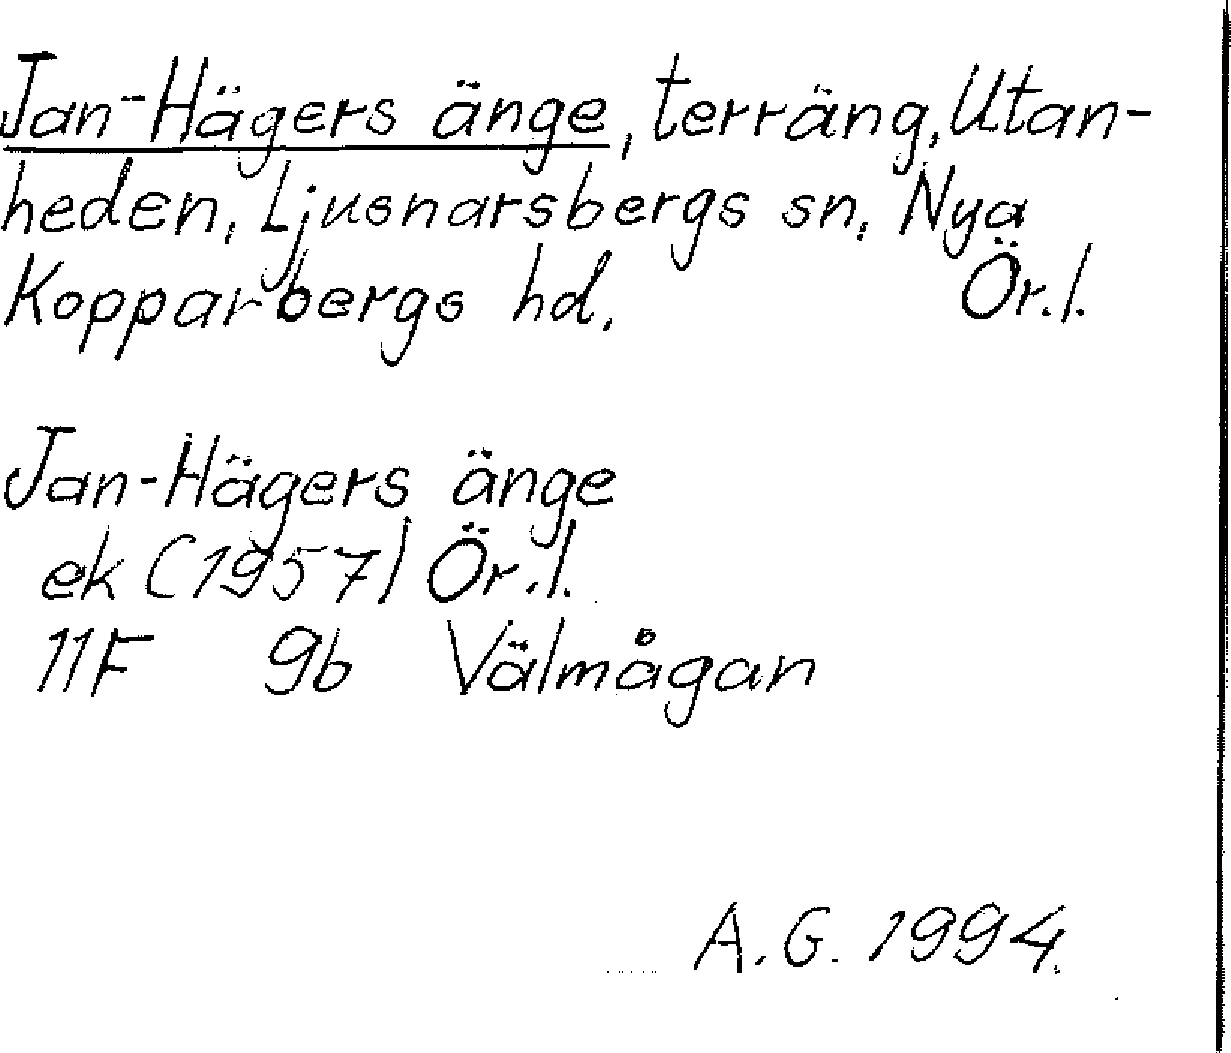 Jan-Hägers änge, terräng, Utan-
heden, Ljusnarsbergs sn, Nya
Kopparbergs hd, Ör.l.
Jan-Hägers änge
ek (1957) Ör.l.
11F 9b Välmågan
A.G. 1994.